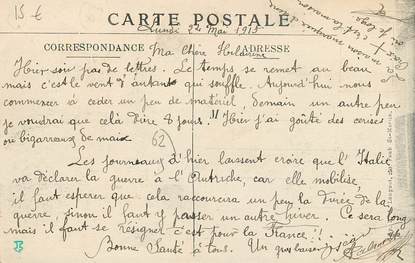 15 €
CARTE POSTALE
Lundi 24 Mai 1915
CORRESPONDANCE Ma Chère Hélairine ADRESSE
Hier soir pas de lettres. Le temps se remet au beau
mais c'est le vent d'antant qui souffle. Aujourd'hui nous
commencer à céder un peu de matériel, demain un autre peu.
je voudrai que celà dure 8 jours." Hier j'ai goûté des cerises
ou bigarreaux de maix
62
Les journeaux d'hier laissent croire que l'Itali
va déclarer la guerre à l'Autriche, car elle mobilise,
il faut esperer que cela raccourcira un peu la durée de la
guerre, sinon il faut y passer un autre hiver. Ce sera long
mais il faut se résigner c'est pour la France"!
Bonne Santé à tous. Un gros baiser